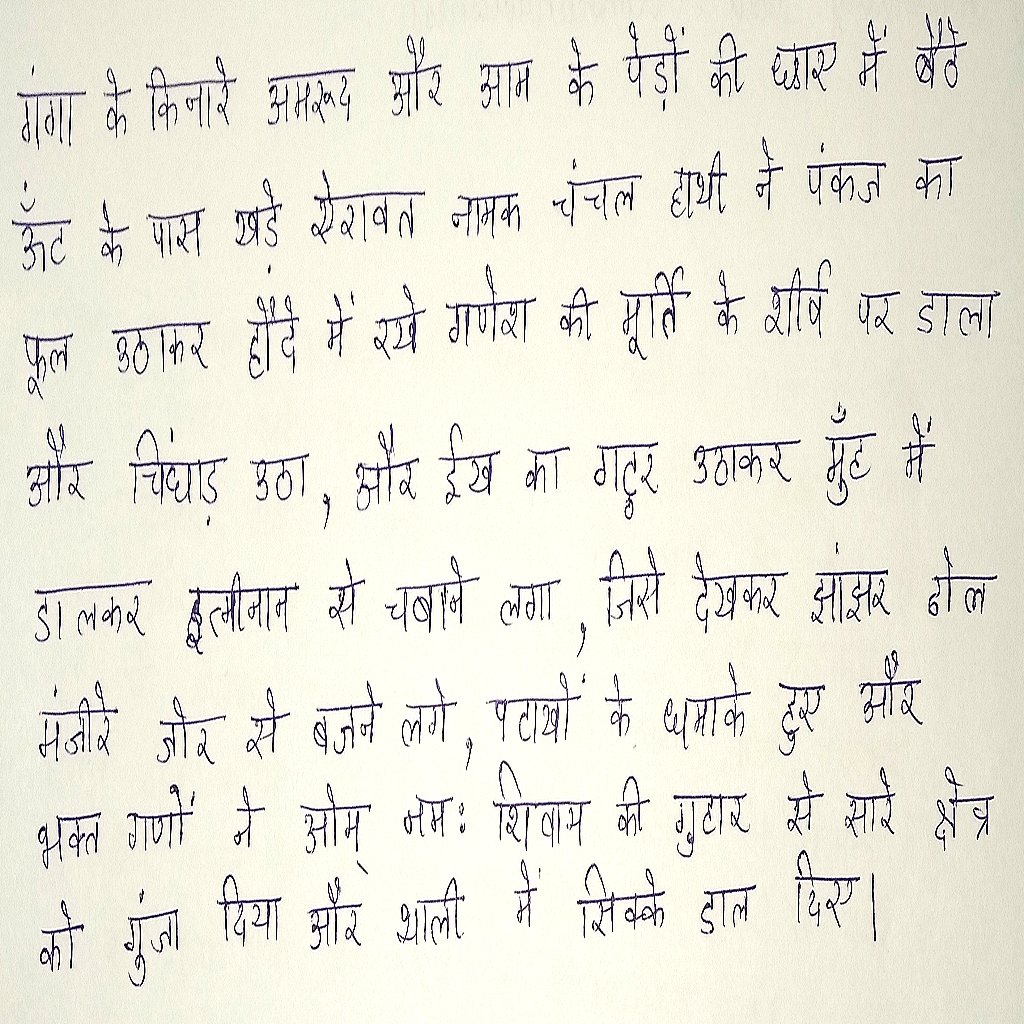 गंगा के किनारे अमरूद और आम के पेड़ों की छाए में बैठे
ऊँट के पास खड़े ऐरावत नामक चंचल हाथी ने पंकज का
फूल उठाकर हौंदे में रखे गणेश की मूर्ति के शीर्ष पर डाला
और चिंघाड़ उठा, और ईख का गट्ठर उठाकर मुँह में
डालकर इत्मीनान से चबाने लगा, जिसे देखकर झांझर ढोल
मंजीरे जोर से बजने लगे, पटाखों के धमाके हुए और
भक्त गणों ने ओम् नमः शिवाय की गुहार से सारे क्षेत्र
को गुंजा दिया और थाली में सिक्के डाल दिए।